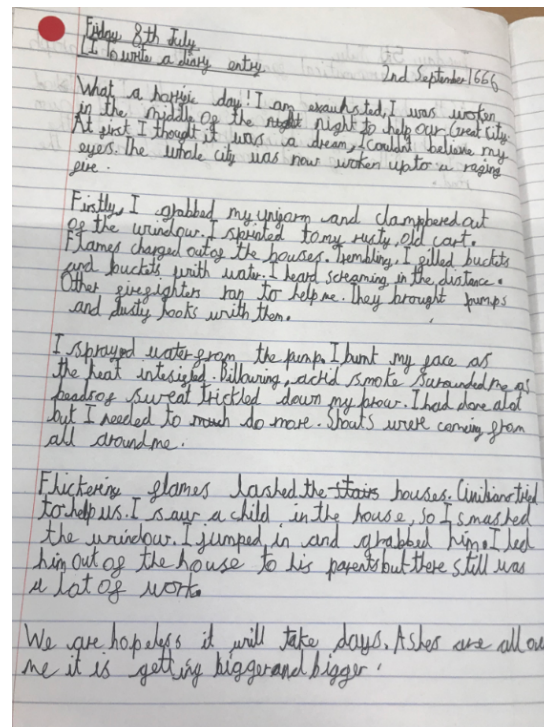 Friday 8th July
LI to write a diary entry
2nd September 1666
What a horrific day!! I am exauhsted, I was woken
in the middle of the night night to help our Great City.
At first I thought it was a dream, I couldnt believe my
eyes. The whole city was now woken up to a raging
fire.
Firstly, I grabbed my uniform and clambered out
of the window. I sprinted to my rusty, old cart.
Flames charged out of the houses. Trembling, I filled buckets
and buckets with water. I heard screaming in the distance.
Other firefighters ran to help me. They brought pumps
and dusty hooks with them.
I sprayed water from the pump. I burnt my face as
the heat intesified. Billowing, acrid smoke surounded me as
beads of sweat trickled down my brow. I had done alot
but I needed to much do more. Shouts were coming from
all around me.
Flickering flames lashed the stairs houses. Civilians tried
to help us. I saw a child in the house, so I smashed
the window. I jumped in and grabbed him. I led
him out of the house to his parents but there still was
a lot of work.
We are hopeless it will take days. Ashes are all ov
me it is getting bigger and bigger.